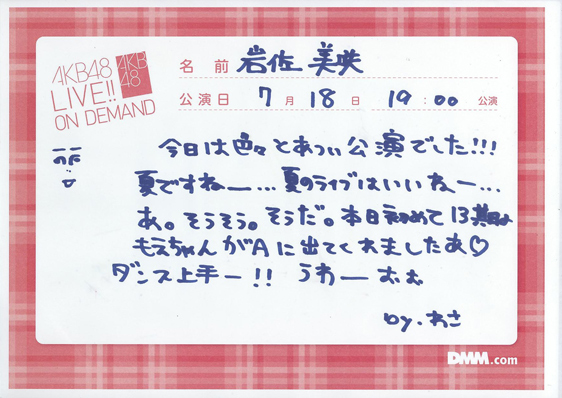 AKB48
LIVE!!
ON DEMAND
AKB
48
名前 岩佐美咲
公演日 7月18日 19:00 公演
今日は色々とあつい公演でした!!!
夏ですねー…夏のライブはいいねー…
あ。そうそう。そうだ。本日初めて13期の
もえちゃんがAに出てくれましたあ♡
ダンス上手ー!! うわーおぉ
by.わさ
DMM.com